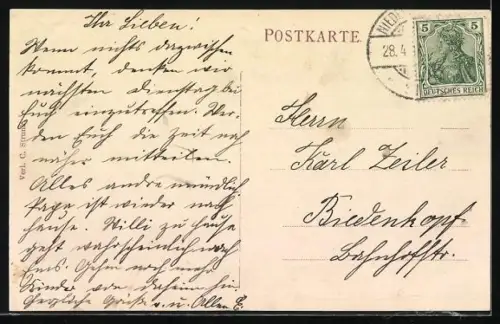 Ihr Lieben!
Wenn nichts dazwischen
kommt, denken wir
nächsten Dienstag bei
Euch einzutreffen. Wer-
den Euch die Zeit noch
näher mitteilen.
Alles andre mündlich
Papa ist wieder nach
hause. Willi zu hause
geht wahrscheinlich noch
Kinder von
Herzliche Grüße v. u. Allen E.
POSTKARTE.
28.4
5 5
DEUTSCHES REICH
Herrn
Karl Zeiler
Biedenkopf
Bahnhofstr.
Verl. C.